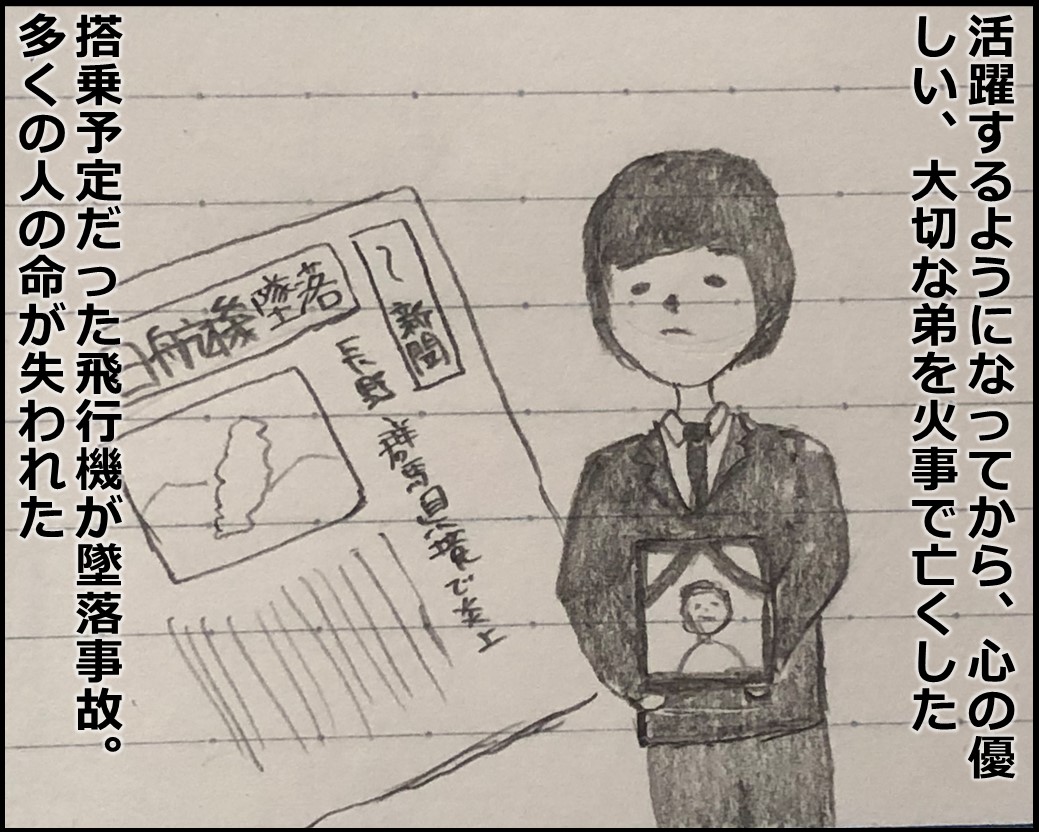 活躍するようになってから、心の優
しい、大切な弟を火事で亡くした
〜新聞
日航機墜落
長野 群馬県境で炎上
搭乗予定だった飛行機が墜落事故。
多くの人の命が失われた